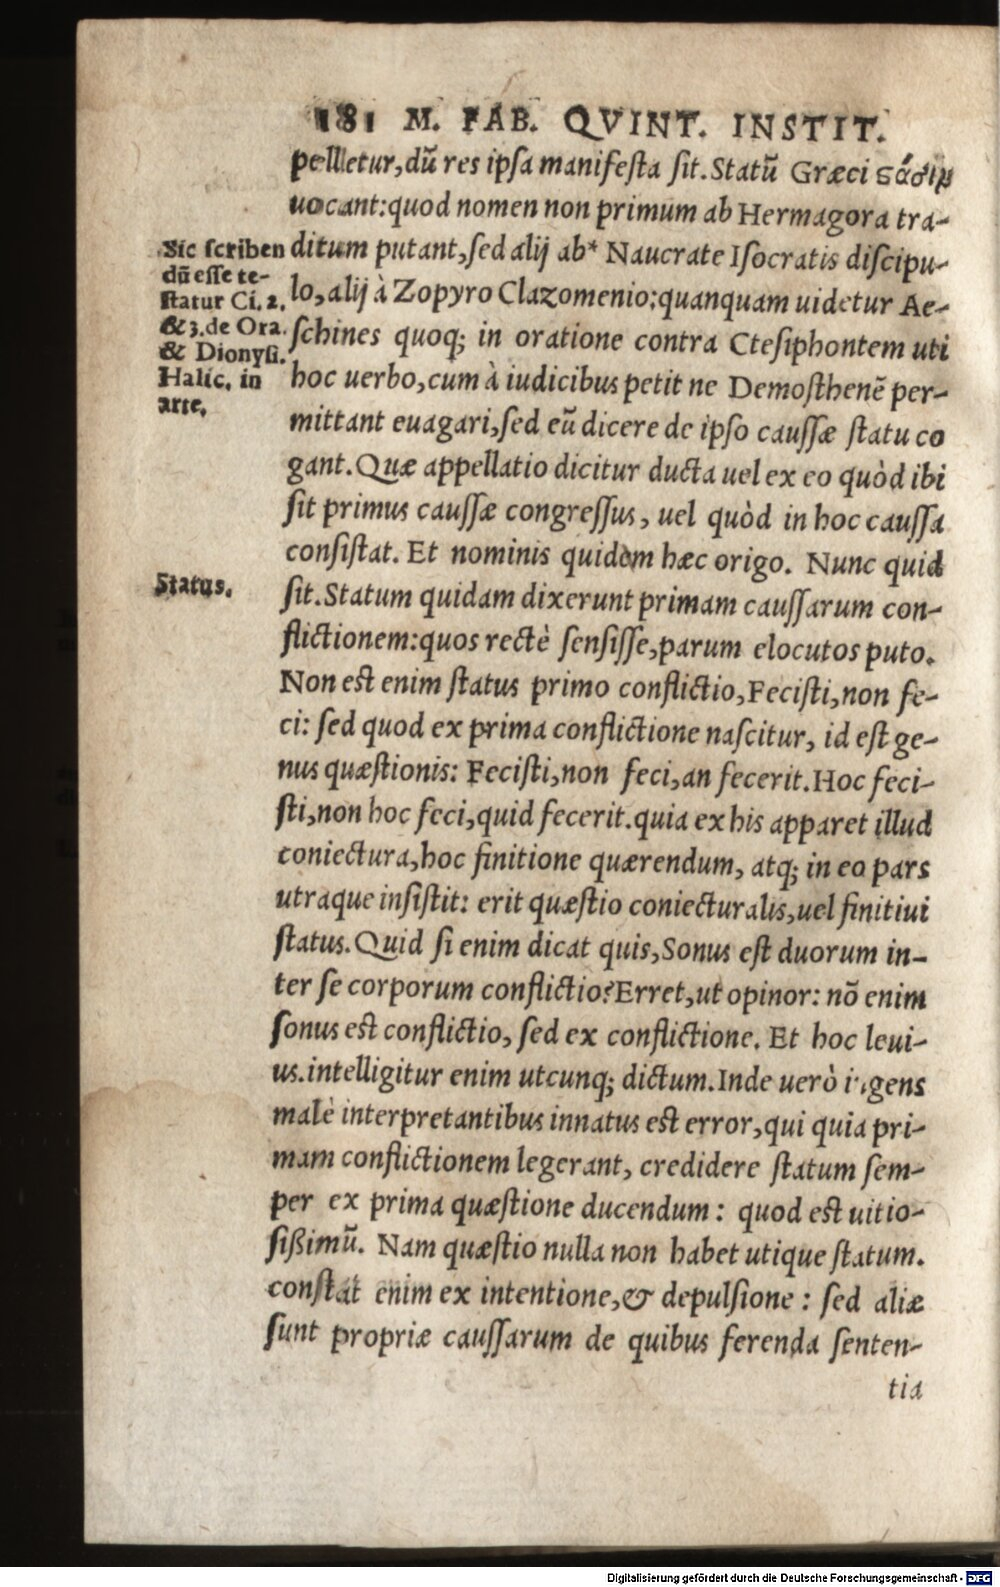 181 M. FAB. QVINT. INSTIT.
pelletur,dũ res ipſa manifeſta ſit.Statũ Græci ςάσιμ
uocant:quod nomen non primum ab Hermagora tra-
ditum putant,ſed alij ab* Naucrate Iſocratis diſcipu-
lo,alij à Zopyro Clazomenio:quanquam uidetur Ae-
ſchines quoq; in oratione contra Cteſiphontem uti
hoc uerbo,cum à iudicibus petit ne Demoſthenẽ per-
mittant euagari,ſed eũ dicere de ipſo cauſſæ ſtatu co
gant.Quæ appellatio dicitur ducta uel ex eo quòd ibi
ſit primus cauſſæ congreſſus, uel quòd in hoc cauſſa
conſiſtat. Et nominis quidem hæc origo. Nunc quid
ſit.Statum quidam dixerunt primam cauſſarum con-
flictionem:quos rectè ſenſiſſe,parum elocutos puto.
Non eſt enim ſtatus primo conflictio,Feciſti,non fe-
ci: ſed quod ex prima conflictione naſcitur, id eſt ge-
nus quæſtionis: Feciſti,non feci,an fecerit.Hoc feci-
ſti,non hoc feci,quid fecerit.quia ex his apparet illud
coniectura,hoc finitione quærendum, atq; in eo pars
utraque inſiſtit: erit quæſtio coniecturalis,uel finitiui
ſtatus.Quid ſi enim dicat quis,Sonus eſt duorum in-
ter ſe corporum conflictio?Erret,ut opinor: nõ enim
ſonus eſt conflictio, ſed ex conflictione. Et hoc leui-
us.intelligitur enim utcunq; dictum.Inde uerò ingens
malè interpretantibus innatus eſt error,qui quia pri-
mam conflictionem legerant, credidere ſtatum ſem-
per ex prima quæſtione ducendum: quod eſt uitio-
ſißimũ. Nam quæſtio nulla non habet utique ſtatum.
conſtat enim ex intentione,& depulſione: ſed aliæ
ſunt propriæ cauſſarum de quibus ferenda ſenten-
tia
Sic ſcriben
dũ eſſe te-
ſtatur Ci.2.
&3.de Ora.
& Dionyſi.
Halic. in
arte.
Status.
Digitalisierung gefördert durch die Deutsche Forschungsgemeinschaft - DFG